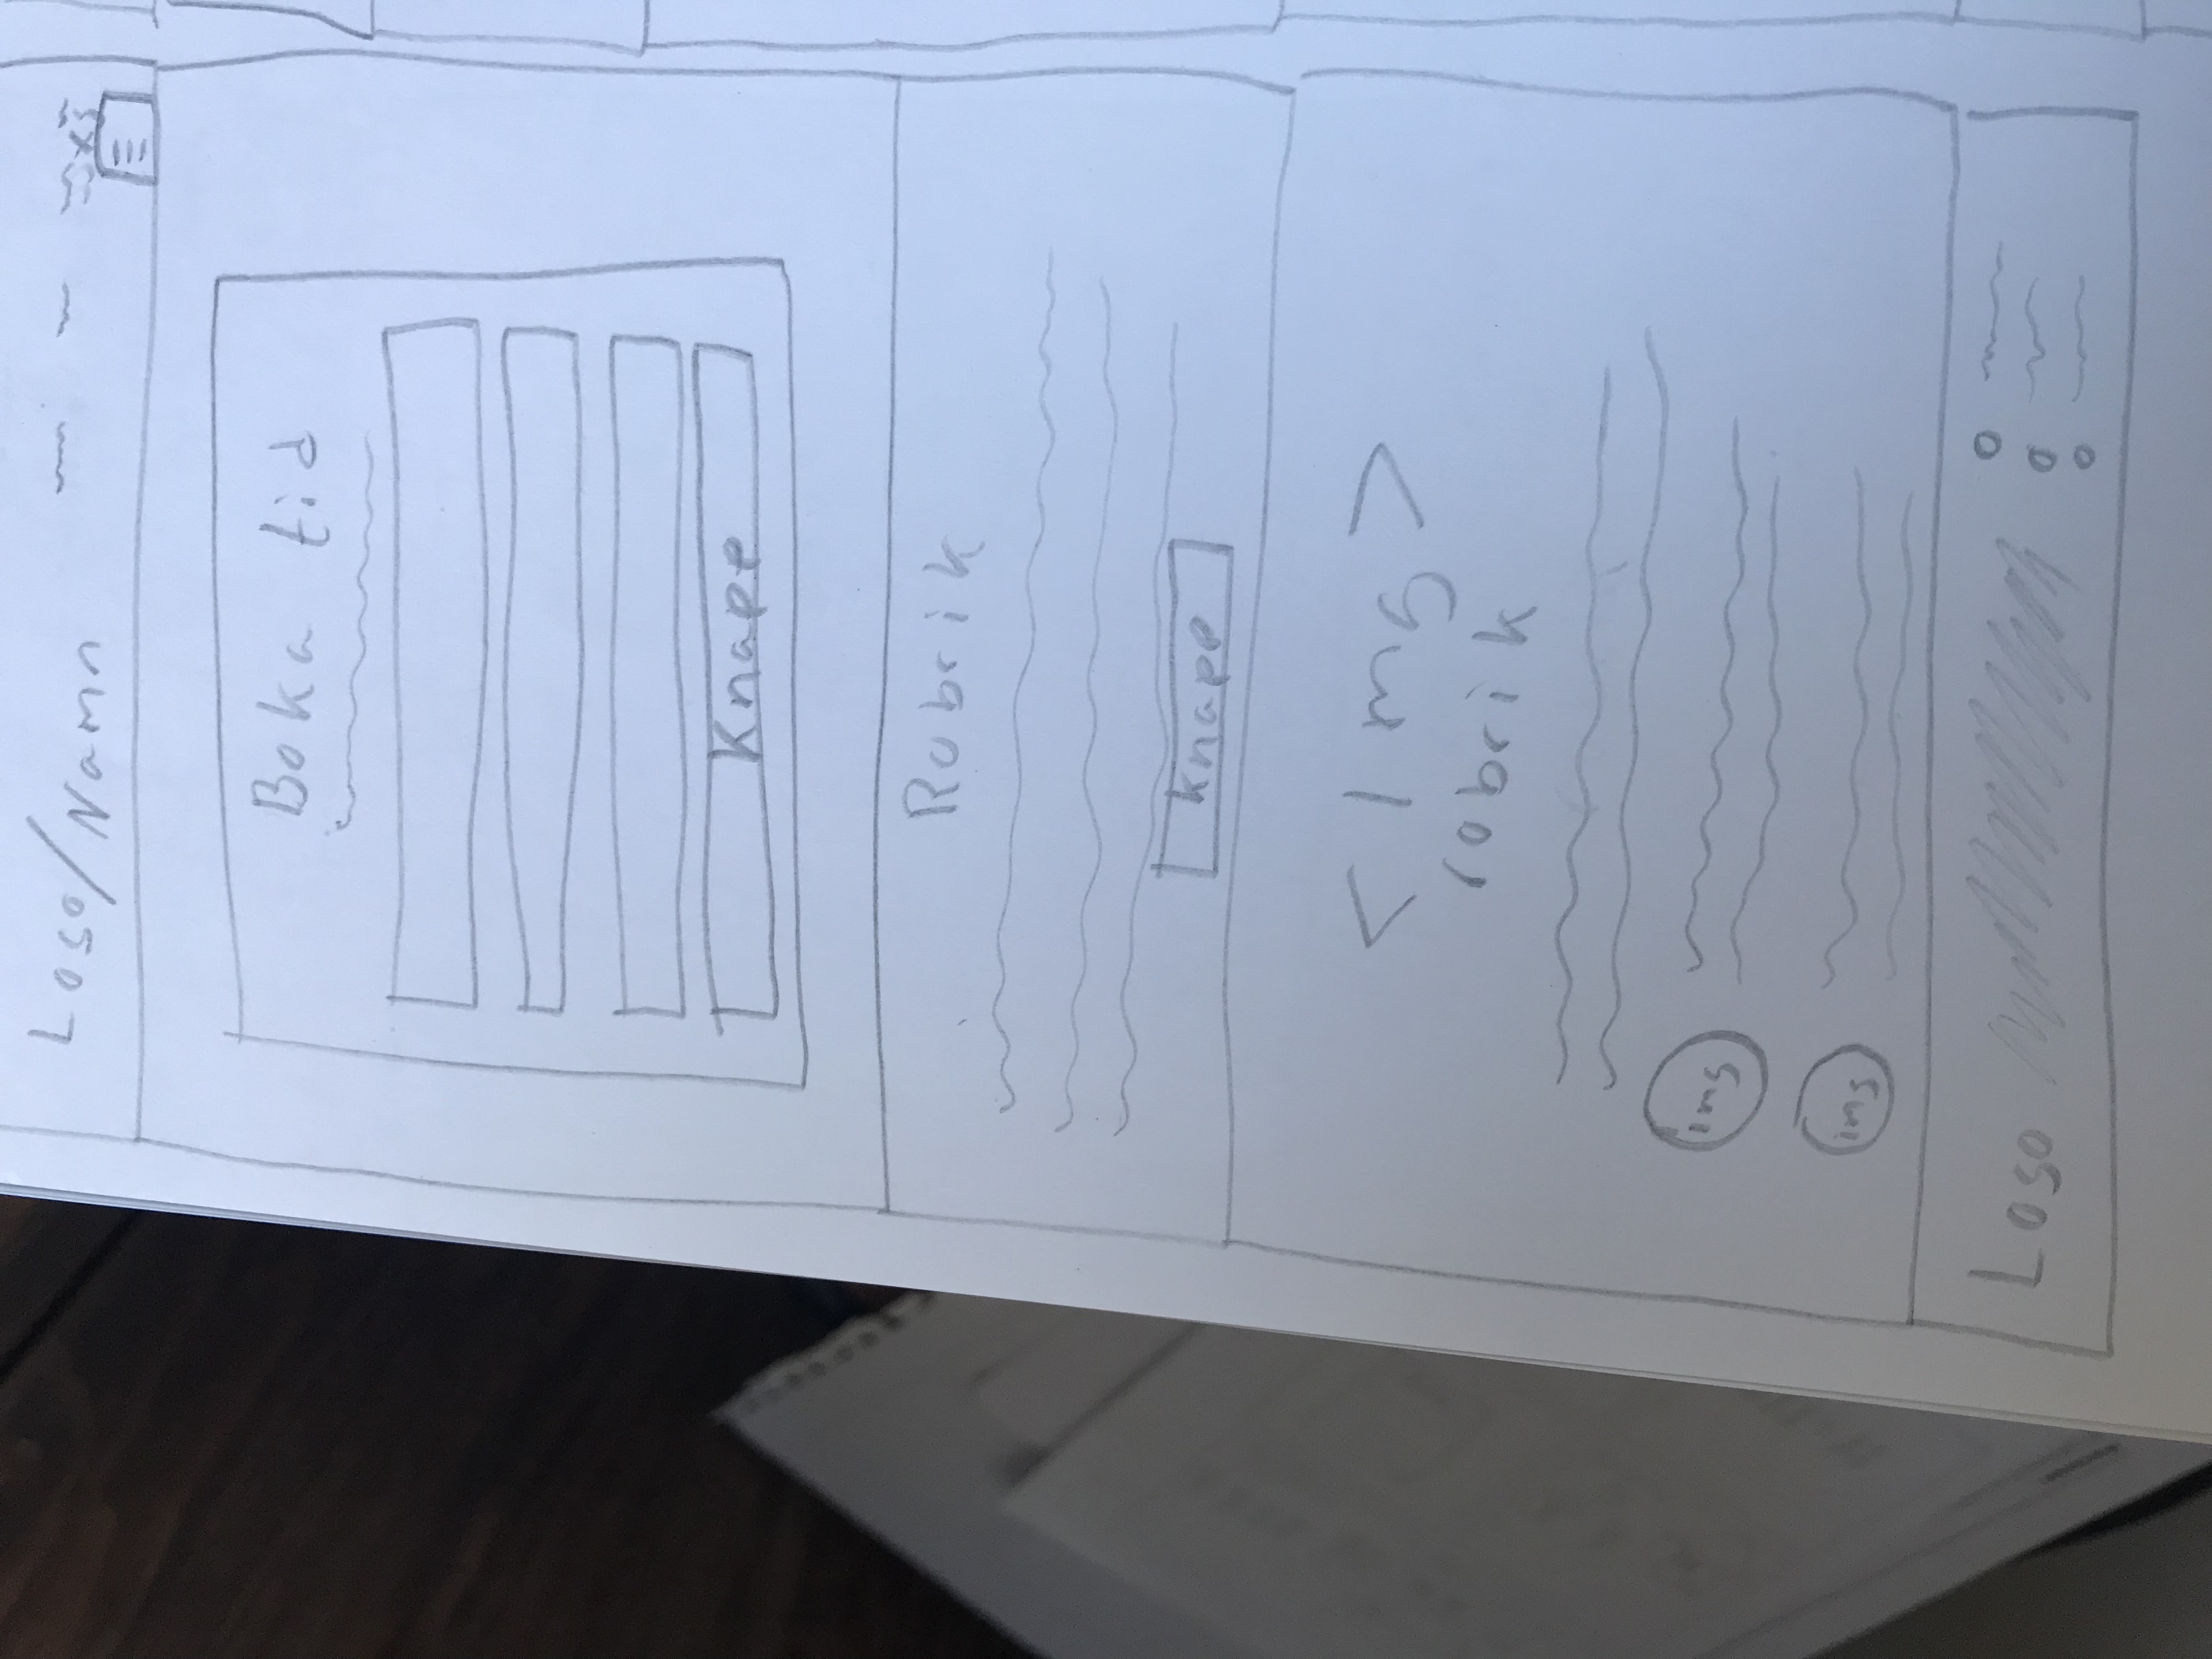 Logo/Namn
Boka tid
Knapp
Rubrik
knapp
<Img>
rubrik
img
img
Logo